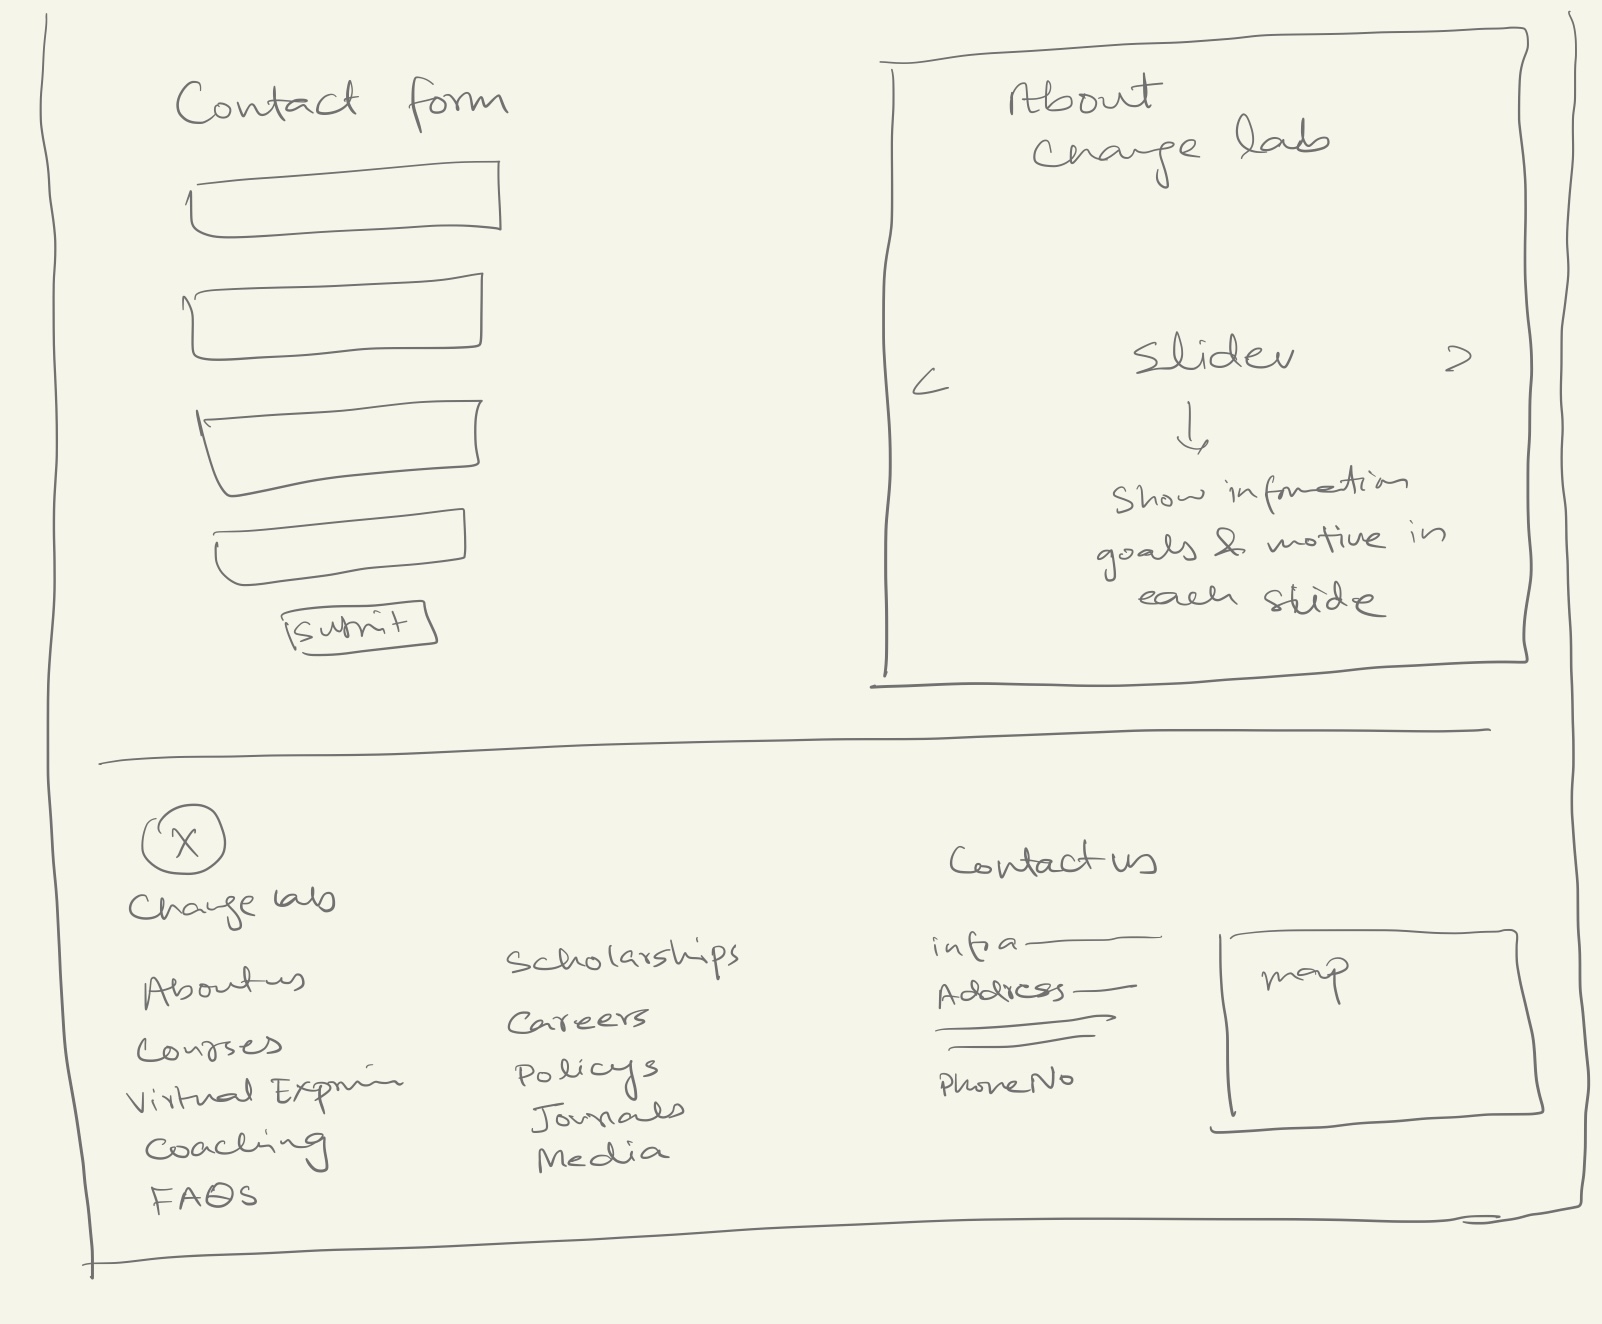 Contact form
submit
About
Change lab
<
slider
>
Show information
goals & motive in
each slide
X
Change lab
About us
Courses
Virtual
Coaching
FAQS
Scholarships
Careers
Policys
Journals
Media
Contact us
infra
Address
Phone No
map